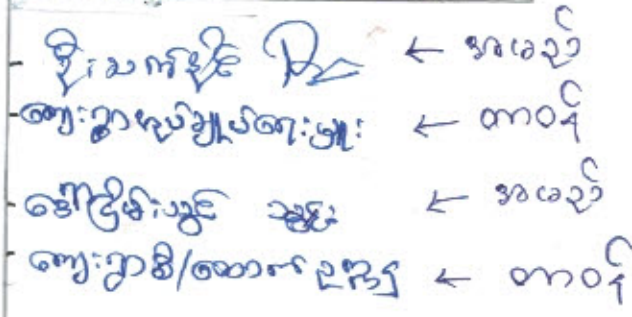 - ဦးသက်နိုင် ← အမည်
- ကျေးရွာအုပ်ချုပ်ရေးမှူး ← တာဝန်
- ဒေါ်ငြိမ်းသွင် ← အမည်
- ကျေးရွာစီ/ထောက် ဥက္ကဋ္ဌ ← တာဝန်